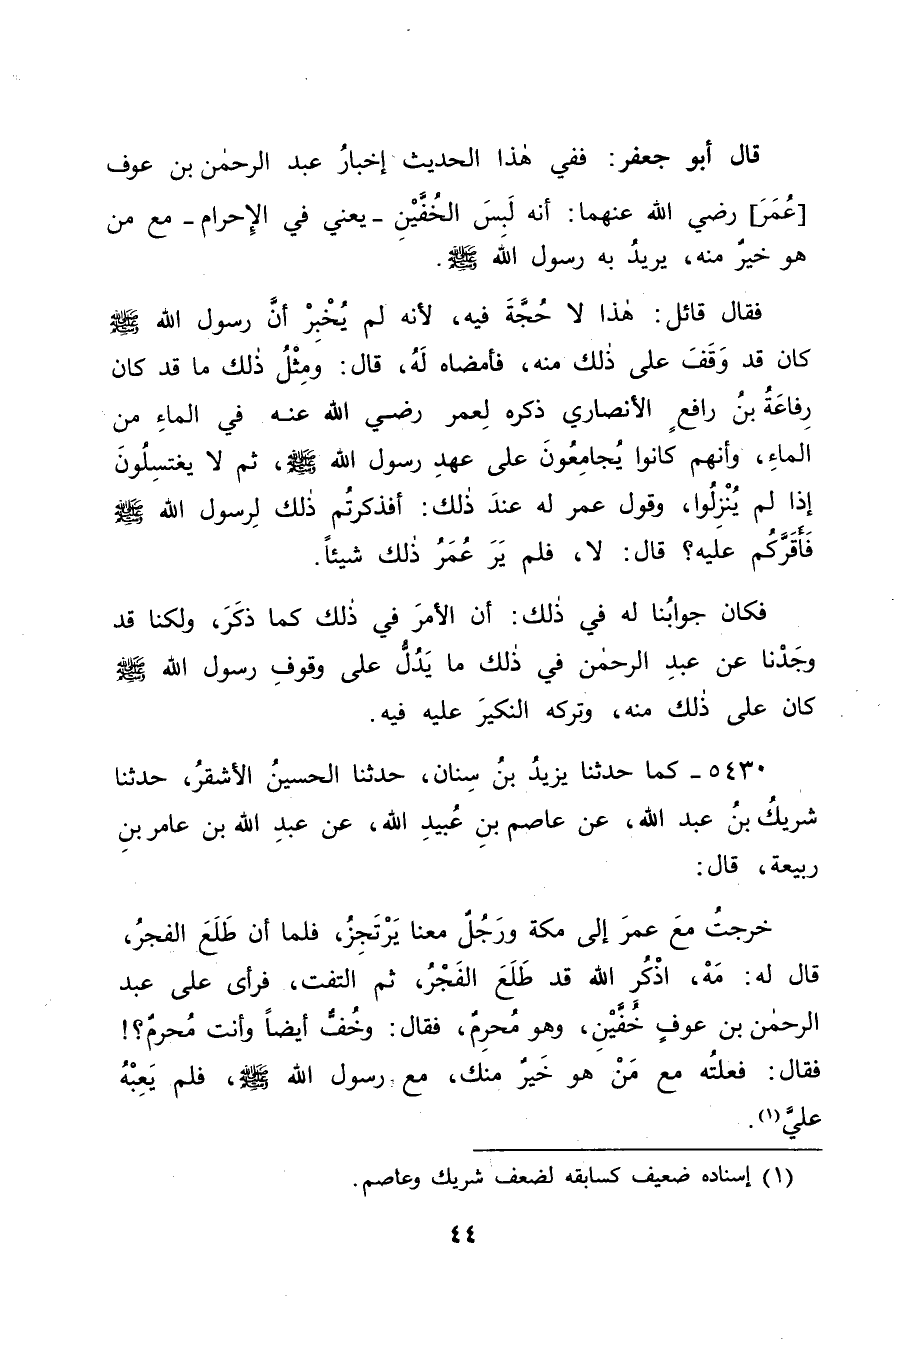 قال أبو جعفر: ففي هٰذا الحديث إخبارُ عبد الرحمٰن بن عوف
[عُمَرَ] رضي الله عنهما: أنه لَبِسَ الخُفَّيْنِ ـ يعني في الإِحرام ـ مع من
هو خيرٌ منه، يريدُ به رسول الله ﷺ.
فقال قائل: هٰذا لا حُجَّةَ فيه، لأنه لم يُخْبِرْ أنَّ رسول الله ﷺ
كان قد وَقَفَ على ذٰلك منه، فأمضاه لَهُ، قال: ومِثْلُ ذٰلك ما قد كان
رِفاعَةُ بنُ رافعٍ الأنصاري ذكره لِعمر رضي الله عنه في الماءِ من
الماءِ، وأنهم كانوا يُجامِعُونَ على عهدِ رسول الله ﷺ، ثم لا يغتسِلُونَ
إذا لم يُنْزِلُوا، وقول عمر له عندَ ذٰلك: أفذكرتُم ذٰلك لِرسول الله ﷺ
فَأَقَرَّكُم عليه؟ قال: لا، فلم يَرَ عُمَرُ ذٰلك شيئاً.
فكان جوابُنا له في ذٰلك: أن الأمرَ في ذٰلك كما ذكَرَ، ولكنا قد
وجَدْنا عن عبدِ الرحمٰن في ذٰلك ما يَدُلُّ على وقوفِ رسول الله ﷺ
كان على ذٰلك منه، وتركه النكيرَ عليه فيه.
٥٤٣٠ ـ كما حدثنا يزيدُ بنُ سِنان، حدثنا الحسينُ الأشقرُ، حدثنا
شريكُ بنُ عبد الله، عن عاصم بنِ عُبيدِ الله، عن عبدِ الله بن عامر بنِ
ربيعة، قال:
خرجتُ معَ عمرَ إلى مكة ورَجُلٌ معنا يَرْتَجِزُ، فلما أن طَلَعَ الفجرُ،
قال له: مَهْ، اذْكُرِ الله قد طَلَعَ الفَجْرُ، ثم التفت، فرأى على عبد
الرحمٰن بن عوفٍ خُفَّيْنِ، وهو مُحرِمٌ، فقال: وخُفٌّ أيضاً وأنت مُحرمٌ؟!
فقال: فعلتُه مع مَنْ هو خَيرٌ منك، مع رسول الله ﷺ، فلم يَعِبْهُ
عليَّ(١).
(١) إسناده ضعيف كسابقه لضعف شريك وعاصم.
٤٤